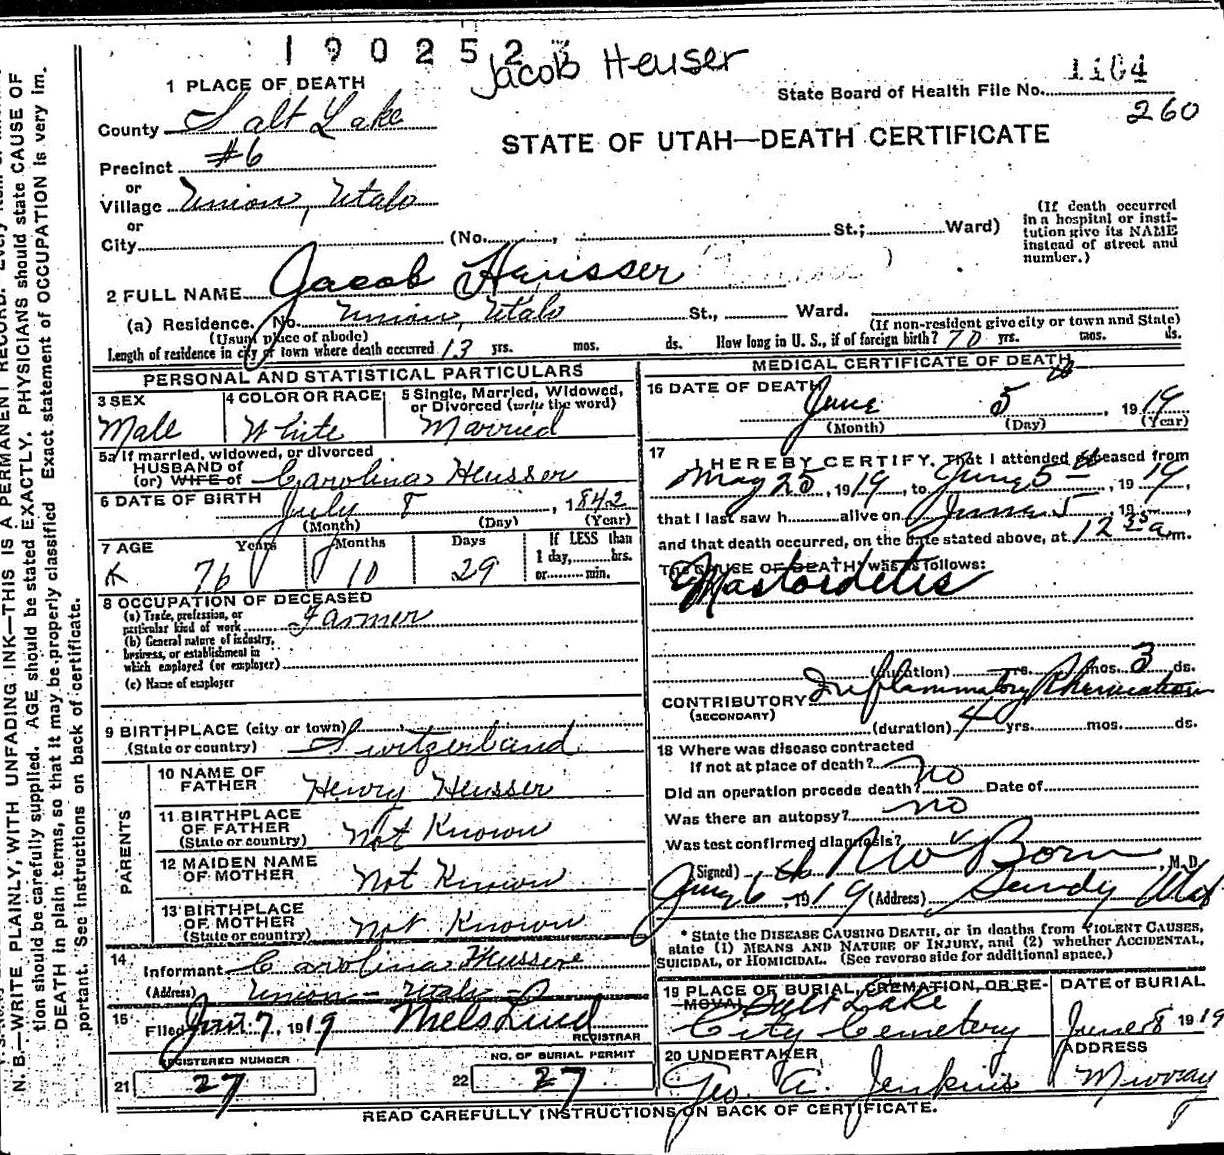 1902523
Jacob Heuser
1104
State Board of Health File No.
260
1 PLACE OF DEATH
County Salt Lake
STATE OF UTAH—DEATH CERTIFICATE
Precinct #6
or
Village Union, Utah
or
City (No. , St.; Ward)
(If death occurred in a hospital or institution give its NAME instead of street and number.)
2 FULL NAME Jacob Heusser
(a) Residence. No. Union, Utah St., Ward.
(Usual place of abode) (If non-resident give city or town and State)
Length of residence in city or town where death occurred 13 yrs. mos. ds. How long in U. S., if of foreign birth? 70 yrs. mos. ds.
PERSONAL AND STATISTICAL PARTICULARS
3 SEX
Male
4 COLOR OR RACE
White
5 Single, Married, Widowed,
or Divorced (write the word)
Married
5a If married, widowed, or divorced
HUSBAND of
(or) WIFE of Carolina Heusser
6 DATE OF BIRTH July 8, 1842
(Month) (Day) (Year)
7 AGE Years Months Days If LESS than
1 day, hrs.
76 10 29 or min.
8 OCCUPATION OF DECEASED
(a) Trade, profession, or
particular kind of work Farmer
(b) General nature of industry,
business, or establishment in
which employed (or employer)
(c) Name of employer
9 BIRTHPLACE (city or town)
(State or country) Switzerland
PARENTS
10 NAME OF
FATHER Henry Heusser
11 BIRTHPLACE
OF FATHER
(State or country) Not Known
12 MAIDEN NAME
OF MOTHER Not Known
13 BIRTHPLACE
OF MOTHER
(State or country) Not Known
14
Informant Carolina Heussere
(Address) Union - Utah
15
Filed 7, 1919 Nels Lind
REGISTRAR
REGISTERED NUMBER
21 27
NO. OF BURIAL PERMIT
22 27
MEDICAL CERTIFICATE OF DEATH
16 DATE OF DEATH
June 5 th, 1919
(Month) (Day) (Year)
17
I HEREBY CERTIFY, That I attended deceased from
May 25, 1919, to June 5 th, 1919,
that I last saw h alive on June 5, 19 ,
and that death occurred, on the date stated above, at 12 35 a m.
The CAUSE OF DEATH was as follows:
Mastoidetis
(duration) yrs. mos. 3 ds.
CONTRIBUTORY Inflammatory Rheumatism
(SECONDARY)
(duration) 4 yrs. mos. ds.
18 Where was disease contracted
If not at place of death?
Did an operation precede death? no Date of
Was there an autopsy? no
Was test confirmed diagnosis?
(Signed) M. D.
June 6 -1919 (Address) Sandy Utah
* State the DISEASE CAUSING DEATH, or in deaths from VIOLENT CAUSES,
state (1) MEANS AND NATURE OF INJURY, and (2) whether ACCIDENTAL,
SUICIDAL, or HOMICIDAL. (See reverse side for additional space.)
19 PLACE OF BURIAL, CREMATION, OR RE-
MOVAL Salt Lake
City Cemetery
DATE of BURIAL
June 8 1919
20 UNDERTAKER
Geo. A. Jenkins
ADDRESS
Murray
READ CAREFULLY INSTRUCTIONS ON BACK OF CERTIFICATE.
N. B.—WRITE PLAINLY, WITH UNFADING INK—THIS IS A PERMANENT RECORD. Every item
tion should be carefully supplied. AGE should be stated EXACTLY. PHYSICIANS should state CAUSE OF
DEATH in plain terms, so that it may be properly classified. Exact statement of OCCUPATION is very im-
portant. See instructions on back of certificate.